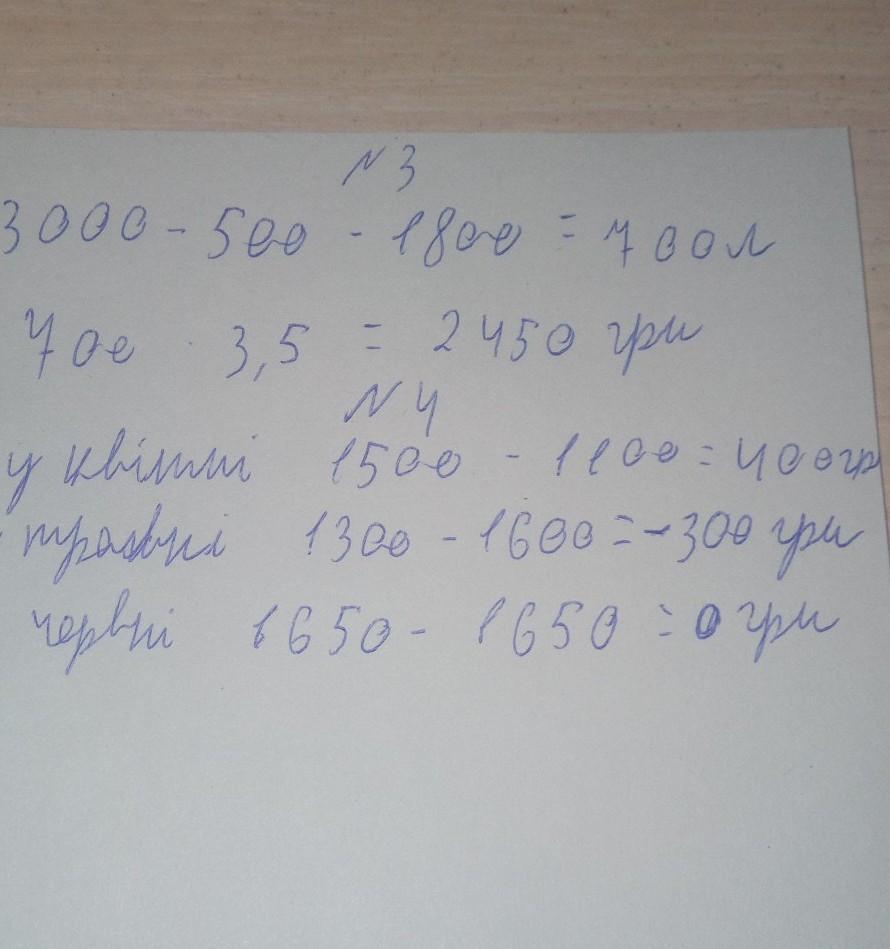 N 3
3000 - 500 - 1800 = 700 л
700 · 3,5 = 2450 грн
N 4
у квітні 1500 - 1100 = 400 гр
травні 1300 - 1600 = -300 грн
червні 1650 - 1650 = 0 грн